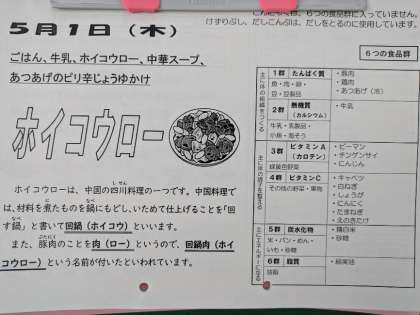 ５月１日（木）
ごはん、牛乳、ホイコウロー、中華スープ、
あつあげのピリ辛じょうゆかけ
ホイコウロー
ホイコウローは、中国の四川料理の一つです。中国料理で
しせん
は、材料を煮たものを鍋にもどし、いためて仕上げることを「回
に
なべ
す鍋」と書いて回鍋（ホイコウ）といいます。
なべ
また、豚肉のことを肉（ロー）というので、回鍋肉（ホイ
ぶたにく
コウロー）という名前が付いたといわれています。
６つの食品群に入っていません。
けずりぶし、だしこんぶは、だしをとるのに使用しています。
６つの食品群
主に体の組織をつくる
１群 たんぱく質
魚・肉・卵・
豆・豆製品
・豚肉
・鶏肉
・あつあげ（冷）
２群 無機質
（カルシウム）
牛乳・乳製品・
小魚・海そう
・牛乳
主に体の調子を整える
３群 ビタミンA
（カロテン）
緑黄色野菜
・ピーマン
・チンゲンサイ
・にんじん
４群 ビタミンC
その他の野菜・果物
・キャベツ
・白ねぎ
・しょうが
・にんにく
・たまねぎ
・えのきたけ
主にエネルギーになる
５群 炭水化物
米・パン・めん・
いも・砂糖
・精白米
・砂糖
６群 脂質
油脂